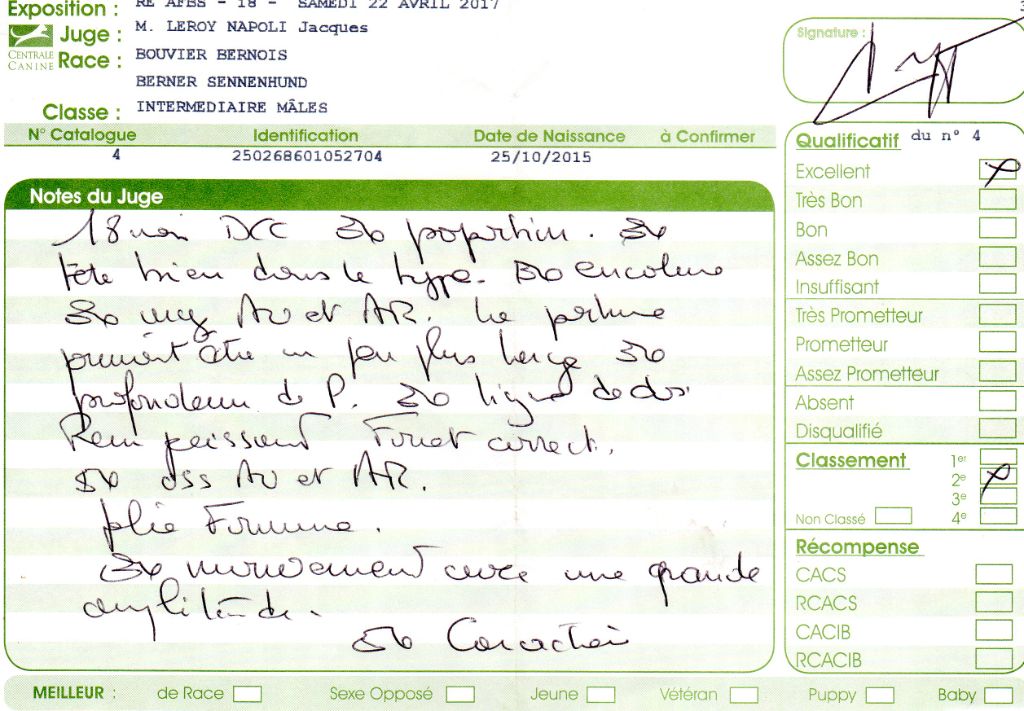 Exposition : RE AFBS - 18 - SAMEDI 22 AVRIL 2017
Juge : M. LEROY NAPOLI Jacques
CENTRALE CANINE
Race : BOUVIER BERNOIS
BERNER SENNENHUND
Classe : INTERMEDIAIRE MÂLES
Signature :
N° Catalogue Identification Date de Naissance à Confirmer
4 250268601052704 25/10/2015
Notes du Juge
18 mois DCC proportion.
tête bien dans le type. encolure
ang AV et AR. La poitrine
pourrait être un peu plus large
profondeur de P. ligne de dos
Rein puissant Fouet correct.
oss AV et AR.
jolie Fourrure.
mouvement avec une grande
amplitude.
Caractère
Qualificatif du n° 4
Excellent X
Très Bon
Bon
Assez Bon
Insuffisant
Très Prometteur
Prometteur
Assez Prometteur
Absent
Disqualifié
Classement 1er
2e X
3e
Non Classé 4e
Récompense
CACS
RCACS
CACIB
RCACIB
MEILLEUR : de Race Sexe Opposé Jeune Vétéran Puppy Baby